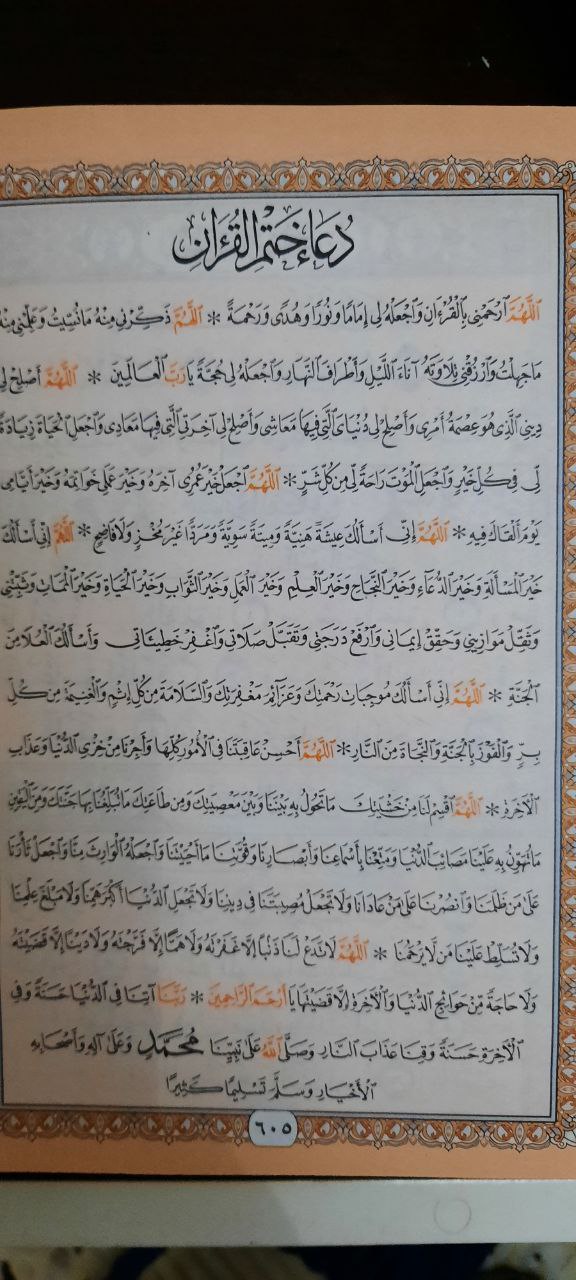 دُعَاءُ خَتْمِ الْقُرْآنِ
اللَّهُمَّ ارْحَمْنِي بِالْقُرْءَانِ وَاجْعَلْهُ لِي إِمَامًا وَنُورًا وَهُدًى وَرَحْمَةً * اللَّهُمَّ ذَكِّرْنِي مِنْهُ مَا نُسِّيتُ وَعَلِّمْنِي مِنْهُ
مَا جَهِلْتُ وَارْزُقْنِي تِلَاوَتَهُ آنَاءَ اللَّيْلِ وَأَطْرَافَ النَّهَارِ وَاجْعَلْهُ لِي حُجَّةً يَا رَبَّ الْعَالَمِينَ * اللَّهُمَّ أَصْلِحْ لِي
دِينِي الَّذِي هُوَ عِصْمَةُ أَمْرِي وَأَصْلِحْ لِي دُنْيَايَ الَّتِي فِيهَا مَعَاشِي وَأَصْلِحْ لِي آخِرَتِي الَّتِي فِيهَا مَعَادِي وَاجْعَلِ الْحَيَاةَ زِيَادَةً
لِي فِي كُلِّ خَيْرٍ وَاجْعَلِ الْمَوْتَ رَاحَةً لِي مِنْ كُلِّ شَرٍّ * اللَّهُمَّ اجْعَلْ خَيْرَ عُمْرِي آخِرَهُ وَخَيْرَ عَمَلِي خَوَاتِمَهُ وَخَيْرَ أَيَّامِي
يَوْمَ أَلْقَاكَ فِيهِ * اللَّهُمَّ إِنِّي أَسْأَلُكَ عِيشَةً هَنِيَّةً وَمِيتَةً سَوِيَّةً وَمَرَدًّا غَيْرَ مُخْزٍ وَلَا فَاضِحٍ * اللَّهُمَّ إِنِّي أَسْأَلُكَ
خَيْرَ الْمَسْأَلَةِ وَخَيْرَ الدُّعَاءِ وَخَيْرَ النَّجَاحِ وَخَيْرَ الْعِلْمِ وَخَيْرَ الْعَمَلِ وَخَيْرَ الثَّوَابِ وَخَيْرَ الْحَيَاةِ وَخَيْرَ الْمَمَاتِ وَثَبِّتْنِي
وَثَقِّلْ مَوَازِينِي وَحَقِّقْ إِيمَانِي وَارْفَعْ دَرَجَتِي وَتَقَبَّلْ صَلَاتِي وَاغْفِرْ خَطِيئَاتِي وَأَسْأَلُكَ الْعُلَا مِنَ
الْجَنَّةِ * اللَّهُمَّ إِنِّي أَسْأَلُكَ مُوجِبَاتِ رَحْمَتِكَ وَعَزَائِمَ مَغْفِرَتِكَ وَالسَّلَامَةَ مِنْ كُلِّ إِثْمٍ وَالْغَنِيمَةَ مِنْ كُلِّ
بِرٍّ وَالْفَوْزَ بِالْجَنَّةِ وَالنَّجَاةَ مِنَ النَّارِ * اللَّهُمَّ أَحْسِنْ عَاقِبَتَنَا فِي الْأُمُورِ كُلِّهَا وَأَجِرْنَا مِنْ خِزْيِ الدُّنْيَا وَعَذَابِ
الْآخِرَةِ * اللَّهُمَّ اقْسِمْ لَنَا مِنْ خَشْيَتِكَ مَا تَحُولُ بِهِ بَيْنَنَا وَبَيْنَ مَعْصِيَتِكَ وَمِنْ طَاعَتِكَ مَا تُبَلِّغُنَا بِهَا جَنَّتَكَ وَمِنَ الْيَقِينِ
مَا تُهَوِّنُ بِهِ عَلَيْنَا مَصَائِبَ الدُّنْيَا وَمَتِّعْنَا بِأَسْمَاعِنَا وَأَبْصَارِنَا وَقُوَّتِنَا مَا أَحْيَيْتَنَا وَاجْعَلْهُ الْوَارِثَ مِنَّا وَاجْعَلْ ثَأْرَنَا
عَلَى مَنْ ظَلَمَنَا وَانْصُرْنَا عَلَى مَنْ عَادَانَا وَلَا تَجْعَلْ مُصِيبَتَنَا فِي دِينِنَا وَلَا تَجْعَلِ الدُّنْيَا أَكْبَرَ هَمِّنَا وَلَا مَبْلَغَ عِلْمِنَا
وَلَا تُسَلِّطْ عَلَيْنَا مَنْ لَا يَرْحَمُنَا * اللَّهُمَّ لَا تَدَعْ لَنَا ذَنْبًا إِلَّا غَفَرْتَهُ وَلَا هَمًّا إِلَّا فَرَّجْتَهُ وَلَا دَيْنًا إِلَّا قَضَيْتَهُ
وَلَا حَاجَةً مِنْ حَوَائِجِ الدُّنْيَا وَالْآخِرَةِ إِلَّا قَضَيْتَهَا يَا أَرْحَمَ الرَّاحِمِينَ * رَبَّنَا آتِنَا فِي الدُّنْيَا حَسَنَةً وَفِي
الْآخِرَةِ حَسَنَةً وَقِنَا عَذَابَ النَّارِ وَصَلَّى اللَّهُ عَلَى نَبِيِّنَا مُحَمَّدٍ وَعَلَى آلِهِ وَأَصْحَابِهِ
الْأَخْيَارِ وَسَلَّمَ تَسْلِيمًا كَثِيرًا
٦٠٥